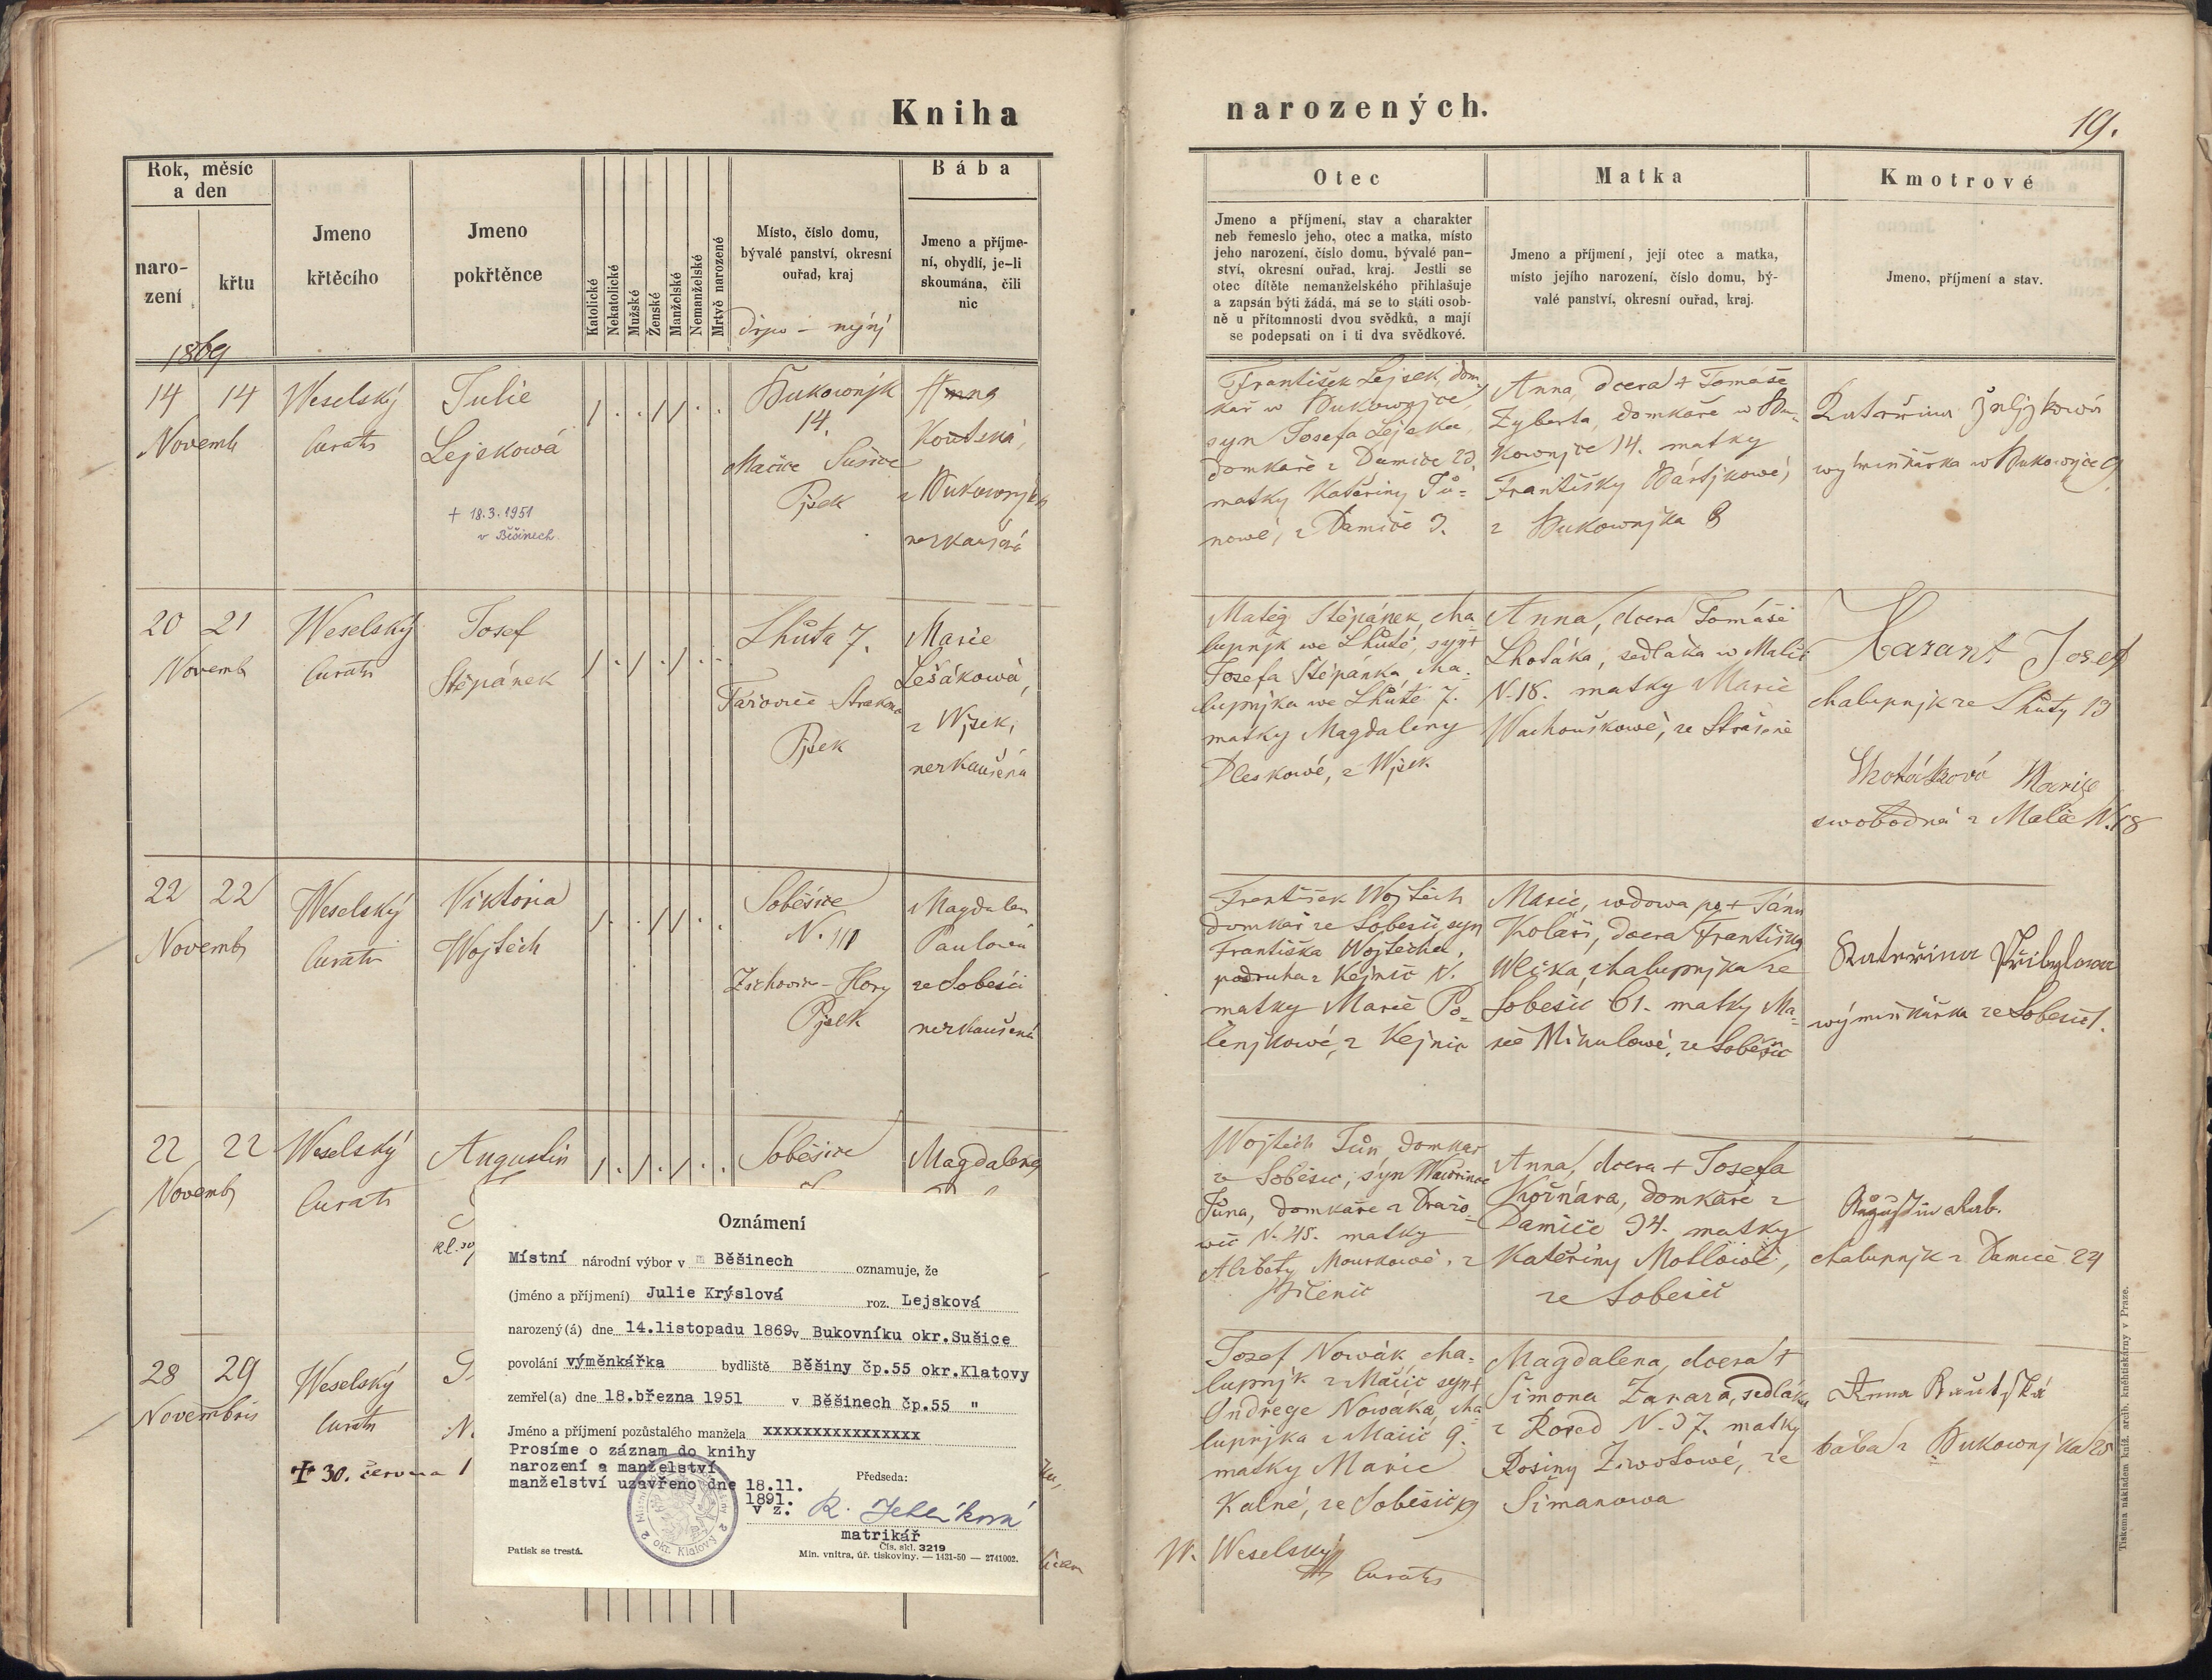 Kniha
narozených.
19.
Rok, měsíc
a den
naro-
zení
křtu
1869
Jmeno
křtěcího
Jmeno
pokřtěnce
Katolické
Nekatolické
Mužské
Ženské
Manželské
Nemanželské
Mrtvě narozené
Místo, číslo domu,
bývalé panství, okresní
ouřad, kraj
Bába
Jmeno a příjme-
ní, obydlí, je-li
skoumána, čili
nic
Otec
Jmeno a příjmení, stav a charakter
neb řemeslo jeho, otec a matka, místo
jeho narození, číslo domu, bývalé pan-
ství, okresní ouřad, kraj. Jestli se
otec dítěte nemanželského přihlašuje
a zapsán býti žádá, má se to státi osob-
ně u přítomnosti dvou svědků, a mají
se podepsati on i ti dva svědkové.
Matka
Jmeno a příjmení, její otec a matka,
místo jejího narození, číslo domu, bý-
valé panství, okresní ouřad, kraj.
Kmotrové
Jmeno, příjmení a stav.
14 14
Novemb
Weselský
Curatus
Julie
Lejskowá
+ 18.3.1951
v Běšinech.
Bukownjk
14.
Mačice Sušice
Pjsek
Anna
Koutská,
z Bukownjka
nezkaušená
František Lejsek, dom-
kař w Bukownjce,
syn Josefa Lejska,
domkaře z Damiče 23.
matky Kateřiny Tů-
nowé, z Damiče 3.
Anna, dcera + Tomáše
Zyberta, domkaře w Bu-
kownjce 14. matky
Františky Bártjkowé,
z Bukownjka 8
wýminkářka w Bukownjce 9
20 21
Novemb
Weselský
Curatus
Josef
Štěpánek
Lhůta 7.
Pjsek
Marie
Lešákowá,
z Wjsek,
nezkaušena
Matěg Štěpánek, cha
lupnjk we Lhůtě, syn +
Josefa Štěpánka, cha-
lupnjka we Lhůtě 7.
matky Magdaleny
Pleskowé, z Wjsek
Anna, dcera Tomáše
Lhotáka, sedláka w Malči
N. 18. matky Marie
Wachouškowé, ze Strašině
Kazant Josef
chalupnjk ze Lhůty 13
Lhotáková Marije
swobodná z Malče N. 18
22 22
Novemb
Weselský
Curatus
Viktoria
Wojtěch
Soběšice
N.
Žichovice - Hory
Pjsek
Magdalen
Paulowá
ze Soběšic
nezkaušená
František Wojtěch
domkař ze Soběšic, syn
Františka Wojtěcha,
podruha z Kejnic N.
matky Marie Po-
lenjkowé, z Kejnic
Marie, wdowa po + Jánu
Koláři, dcera Františka
Wlčka, chalupnjka ze
Soběšic 61. matky Ma-
rie Mikulowé, ze Soběšic
Kateřina Přibylowa
wýminkářka ze Soběšic 1.
22 22
Novemb
Weselský
Curatus
Augustin
Soběšice
Magdalena
Wojtěch Tůn, domkař
ze Soběšic, syn Wawřince
Tůna, domkaře z Dražo-
wic N. 45. matky
Alzbety Mourkowé, z
Bilenic
Anna, dcera + Josefa
Kořnara, domkaře z
Damiče 34. matky
Kateřiny Motlowé,
ze Soběšic
chalupnjk z Damiče 24
28 29
Novembris
Weselský
Curatus
+ 30. června 1
Josef Nowák, cha-
lupnjk z Mačic syn +
Ondřege Nowáka, cha
lupnjka z Mačic 9.
matky Marie
Kalné, ze Soběšic
Magdalena, dcera +
Šimona Zawara, sedláka
z Rozsed N. 37. matky
Rosiny Žiwotowé, ze
Šimanowa
Anna Kautská
bába z Bukownjka 25
W. Weselský
Curatus
Oznámení
Místní národní výbor v Běšinech oznamuje, že
(jméno a příjmení) Julie Krýslová roz. Lejsková
narozený(á) dne 14.listopadu 1869 v Bukovníku okr.Sušice
povolání výměnkářka bydliště Běšiny čp.55 okr.Klatovy
zemřel(a) dne 18.března 1951 v Běšinech čp.55 "
Jméno a příjmení pozůstalého manžela xxxxxxxxxxxxxxxx
Prosíme o záznam do knihy
narození a manželství
manželství uzavřeno dne 18.11.
1891.
Předseda:
v z.
matrikář
Čís. skl. 3219
Patisk se trestá.
Min. vnitra, úř. tiskoviny. — 1431-50 — 2741002.
okr. Klatovy
Tiskem a nákladem kníž. arcib. knihtiskárny v Praze.